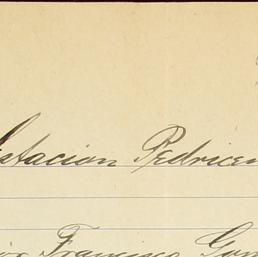 Estacion Pedricen
Francisco Gon